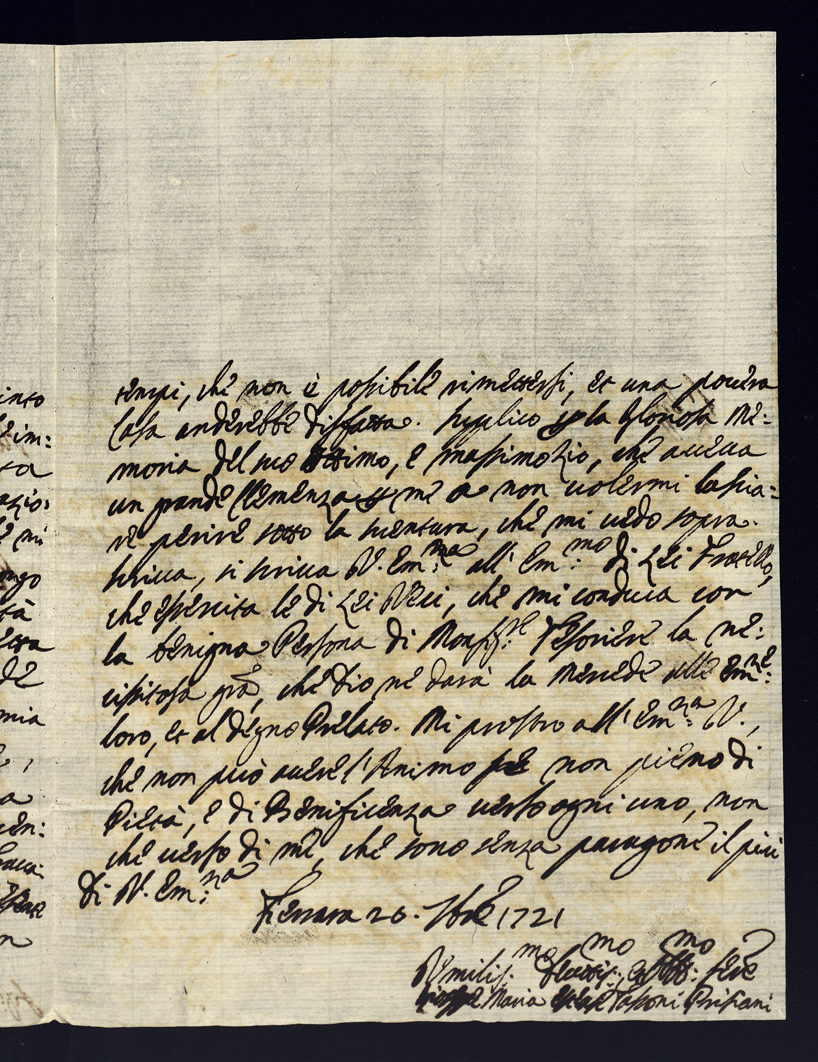 tempi, che non è possibile rimettersi, et una povera
Casa anderebbe disfatta. Supplico p la Gloriosa Me:
moria del suo Ottimo, e Massimo Zio, che aveva
un grande Clemenza p me a non volermi lascia=
re perire sotto la sventura, che mi vedo sopra.
scriva, si scriva V. Em:ma all' Em:mo di Lei Fratello,
che esercita le di Lei Veci, che mi conduca con
la benigna Persona di Monsig:re Tesoriere la ne:
cissitosa gra, che Dio ne darà la Mercede alle Em:ze
loro, et al degno Prelato. Mi prostro all' Em:za V.,
che non può avere l'Animo se non pieno di
Pietà, e di Benificenza verso ogni uno, non
che verso di me, che sono senza paragone il più
di V. Em:za
Ferrara 26. 7bre 1721
Vmilis:mo Devotis:mo Obb:mo Serve
Maria Estense Tassoni Prisciani
into
im:
ta
mi
ongo
tà
etta
de
mia
a
n